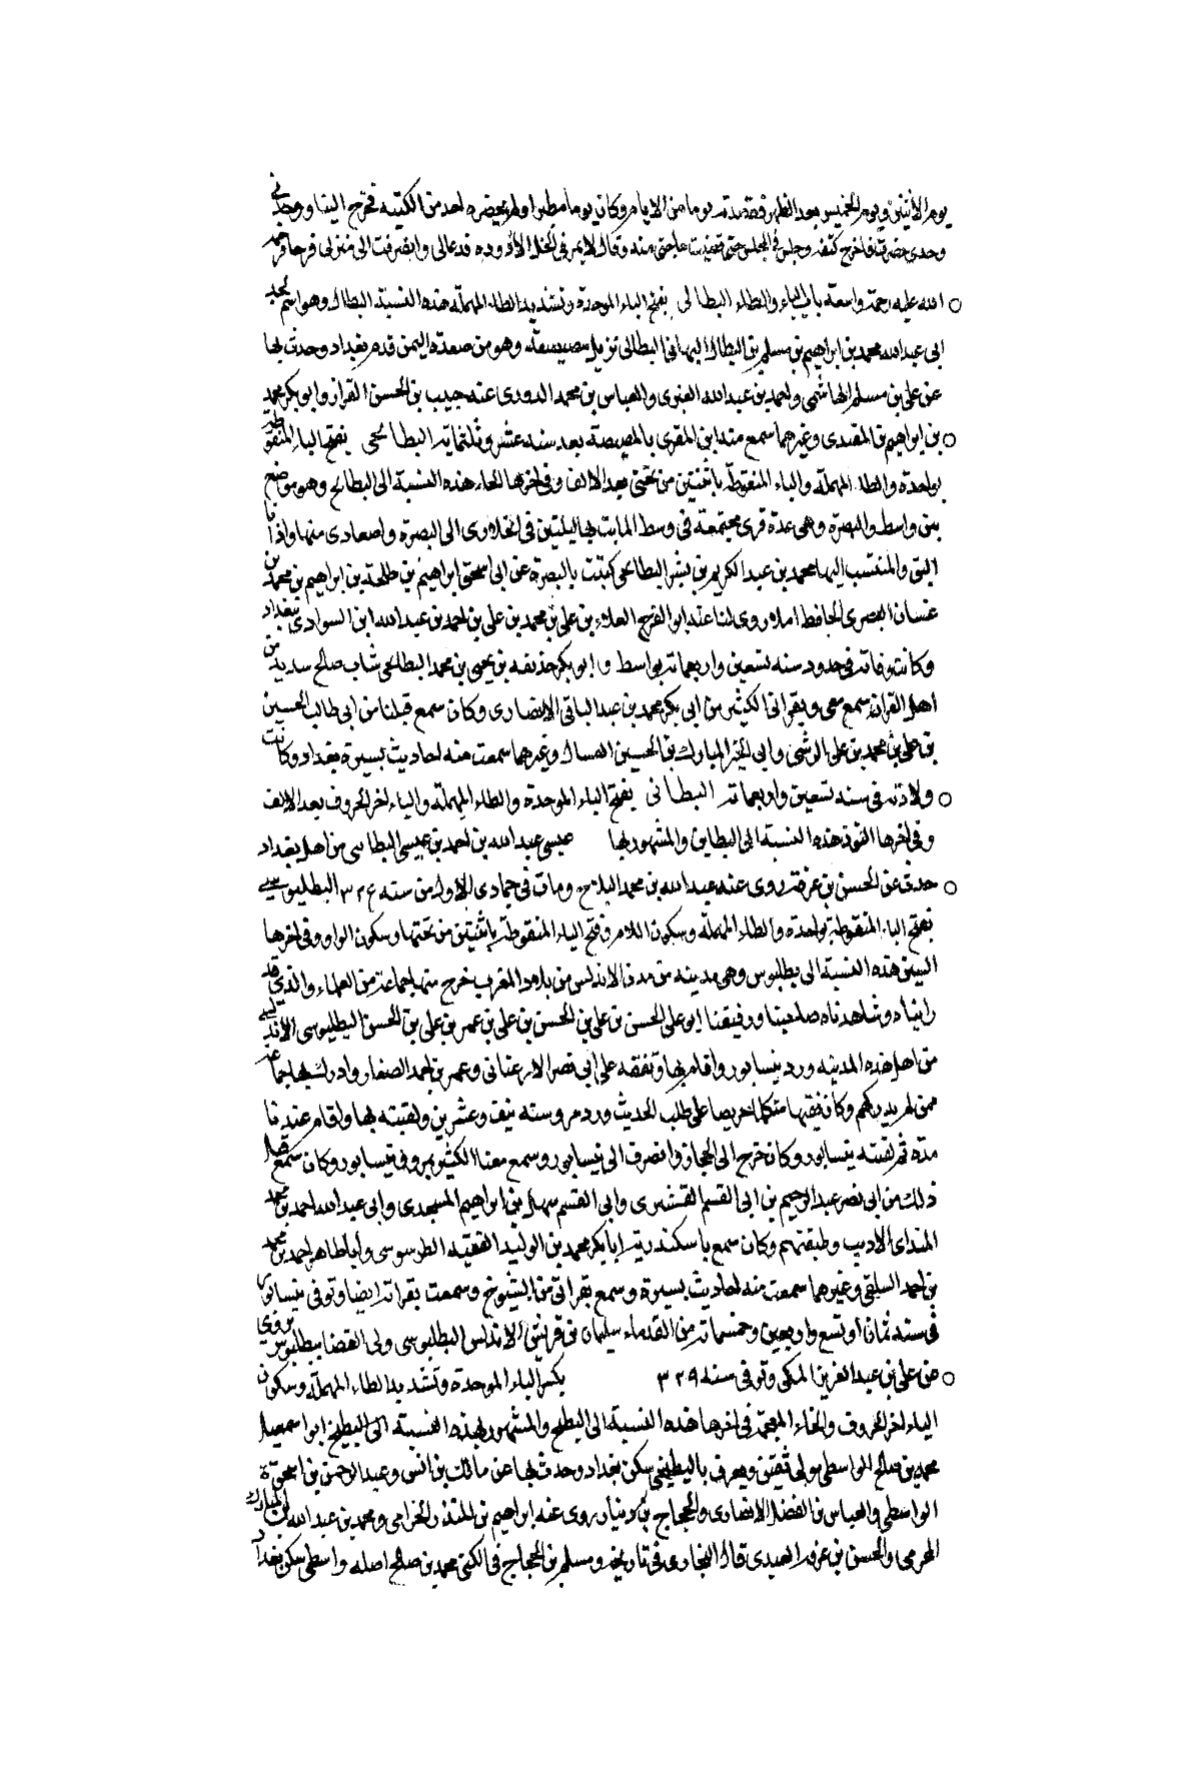 يوم الاثنين ويوم الخميس بعد الظهر فقصدته يوما من الايام وكان يوما مطيرا ولم يحضره احد من الكتبة فخرج الينا وجدنى
وحدى حضرت فاخرج كتفه وجلس فى المجلس حتى قضيت حاجتى منه وقال لا يمر فى الخلا الا ودعا لى وانصرفت الى منزلى فرحا
الله عليه رحمة واسعة باب الباء والطاء البطالى بفتح الباء الموحدة وتشديد الطاء المهملة هذه النسبة البطال وهو اسم لجد
ابى عبد الله محمد بن ابراهيم بن مسلم بن البطال اليمانى البطالى نزيل مصيصة وهو من صعدة اليمن قدم بغداد وحدث بها
عن على بن مسلم الهاشمى واحمد بن عبد الله العنزى والعباس بن محمد الدورى عنه حبيب بن الحسن القزاز وابو بكر محمد
بن ابراهيم بن المقرى وغيرهما سمع منه ابن المقرى بالمصيصة بعد سنه عشر وثلثمائة البطائحى بفتح الباء المنقوطة
بواحدة والطاء المهملة والياء المنقوطة باثنتين من تحتى بعد الالف وفى اخرها الحاء هذه النسبة الى البطائح وهو موضع
بين واسط والبصرة وهى عدة قرى مجتمعة فى وسط الما بت بها ليلتين فى انحدارى الى البصرة واصعادى منها واذانا
البق والمنتسب اليها محمد بن عبد الكريم بن بشر البطائحى كتبت بالبصرة عن ابى اسحق ابراهيم بن طلحة بن ابراهيم بن محمد بن
غسان البصرى الحافظ املا روى لنا عنه ابو الفرج العلاء بن على بن محمد بن على بن احمد بن عبد الله ابن السوادى ببغداد
وكانت وفاته فى حدود سنه تسعين واربعمائة بواسط وابو بكر حذيفه بن يحيى بن محمد البطائحى شاب صالح سديد من
اهل القران سمع معى وبقرائى الكثير من ابى بكر محمد بن عبد الباقى الانصارى وكان سمع قبلنا من ابى طالب الحسين
بن على بن محمد بن على الزينبى وابى الخير المبارك بن الحسين الغسال وغيرهما سمعت منه احاديث يسيرة ببغداد وكانت
ولادته فى سنه تسعين واربعمائة البطائنى بفتح الباء الموحدة والطاء المهملة والياء اخر الحروف بعد الالف
وفى اخرها النون هذه النسبة الى البطاين والمشهور بها عيسى عبد الله بن احمد بن عيسى البطائنى من اهل بغداد
حدث عن الحسن بن عرفة روى عنه عبد الله بن محمد البلاج ومات فى جمادى الاولى من سنه ٣٢٤ البطليوسى
بفتح الباء المنقوطة بواحدة والطاء المهملة وسكون اللام وفتح الياء المنقوطة باثنتين من تحتها وسكون الواو وفى اخرها
السين هذه النسبة الى بطليوس وهى مدينه من مدن الاندلس من بلاد المغرب خرج منها جماعة من العلماء والذى قد
راينا وشاهدناه صاحبنا ورفيقنا ابو على الحسن بن على بن الحسن بن على بن عمر بن على بن الحسن البطليوسى الاندلسى
من اهل هذه المدينه ورد نيسابور واقام بها وتفقه على ابى نصر الارغيانى وعمر بن احمد الصفار وادرك بها جماعة
ممن لم يدركهم وكان فقيها متكلما حريصا على طلب الحديث ورد مرو سنه نيف وعشرين ولقيته بها واقام عندنا
مدة ثم لقيته بنيسابور وكان خرج الى الحجاز وانصرف الى نيسابور وسمع معنا الكثير بمرو فى نيسابور وكان سمع قبل
ذلك من ابى نصر عبد الرحيم بن ابى القسم القشيرى وابى القسم سهل بن ابراهيم المسجدى وابى عبد الله احمد بن محمد
الميدانى الاديب وطبقتهم وكان سمع باسكندرية ابا بكر محمد بن الوليد الفقيه الطرسوسى وابا طاهر احمد بن محمد
بن احمد السلفى وغيرهما سمعت منه احاديث يسيرة وسمع بقراتى من الشيوخ وسمعت بقراته ايضا وتوفى بنيسابور
فى سنه ثمان او تسع واربعين وخمسمائة من القدماء سليمان بن قريش الاندلس البطليوسى ولى القضا ببطليوس يروى
عن على بن عبد العزيز المكى وتوفى سنه ٣٢٩ بكسر الباء الموحدة وتشديد الطاء المهملة وسكون
الياء اخر الحروف والخاء المعجمة فى اخرها هذه النسبة الى البطيخ والمشهور بهذه النسبة الى البطيخ ابو اسمعيل
محمد بن صالح الواسطى مولى ثقيف ويعرف بالبطيخى سكن بغداد وحدث بها عن مالك بن انس وعبد الرحمن بن اسحق
الواسطى والعباس بن الفضل الانصارى والحجاج بن دينار روى عنه ابراهيم بن المنذر الحزامى ومحمد بن عبد الله بن المبارك
المخرمى والحسن بن عرفة العبدى قال البخارى فى تاريخه ومسلم بن الحجاج فى الكنى محمد بن صالح اصله واسطى سكن بغداد